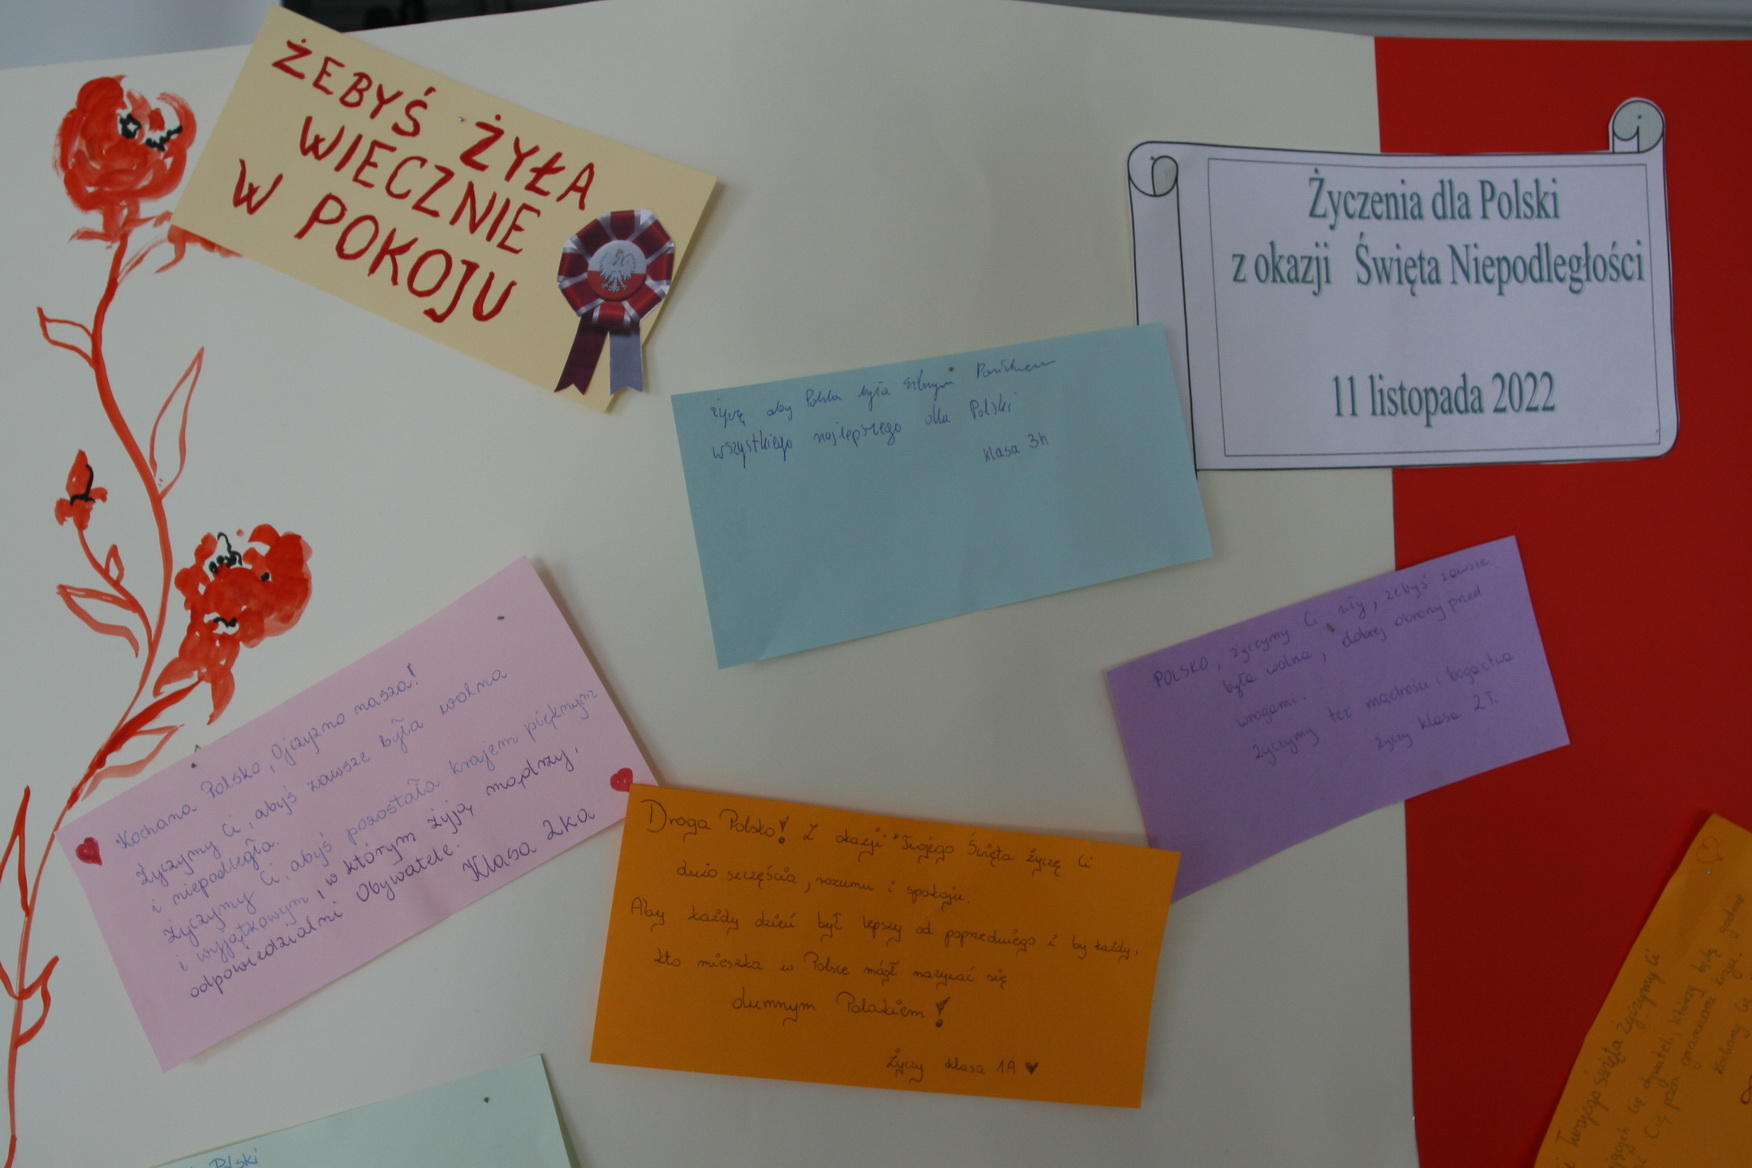 ŻEBYŚ ŻYŁA
WIECZNIE
W POKOJU
Życzenia dla Polski
z okazji Święta Niepodległości
11 listopada 2022
Życzę aby Polska była silnym Państwem
wszystkiego najlepszego dla Polski
klasa 3h
POLSKO, życzymy Ci siły, żebyś zawsze
była wolna, dobrej obrony przed
wrogami.
Życzymy też mądrości i bogactwa
życzy klasa 2T.
Kochana Polsko, Ojczyzno nasza!
Życzymy Ci, abyś zawsze była wolna
i niepodległa.
Życzymy Ci, abyś pozostała krajem pięknym
i wyjątkowym, w którym żyją mądrzy,
odpowiedzialni Obywatele.
Klasa 2ka
Droga Polsko! Z okazji Twojego Święta życzę Ci
dużo szczęścia, rozumu i spokoju.
Aby każdy dzień był lepszy od poprzedniego i by każdy,
kto mieszka w Polsce mógł nazywać się
dumnym Polakiem!
Życzy klasa 1A
Twojego święta życzymy Ci
obywateli, którzy będą godnie
Cię poza granicami kraju.
Kochamy Cię
Polski